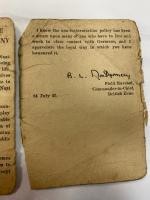 I know the non-fraternization policy has been
a strain upon many of you who have to live and
work in close contact with Germans, and I
appreciate the loyal way in which you have
honoured it.
B. L. Montgomery
Field Marshal,
Commander-in-Chief,
British Zone
14 July 45.